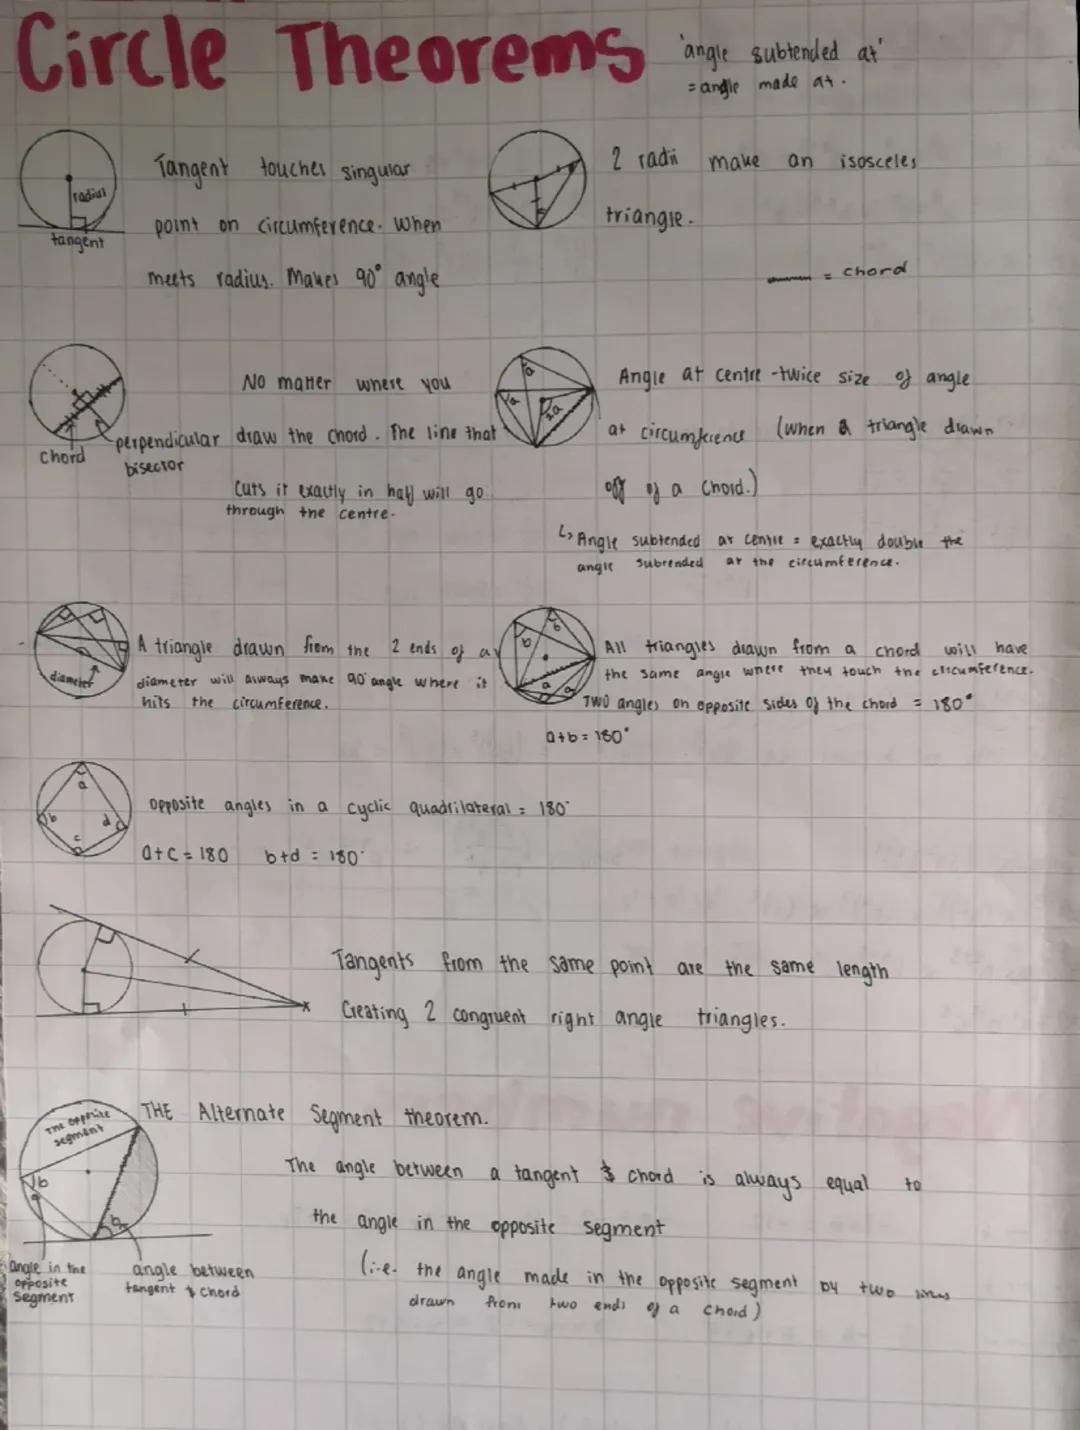 Circle Theorems
'angle subtended at'
= angle made at.
radius
tangent
Tangent touches singular
point on circumference. When
meets radius. Makes 90° angle
2 radii make an isosceles
triangle.
= chord
chord
perpendicular
bisector
No matter where you
draw the chord. The line that
cuts it exactly in half will go
through the centre.
a
a
2a
Angle at centre - twice size of angle
at circumference (when a triangle drawn
off of a chord.)
↳ Angle subtended at centre = exactly double the
angle subtended at the circumference.
diameter
A triangle drawn from the 2 ends of a
diameter will always make 90° angle where it
hits the circumference.
b
b
a
a
All triangles drawn from a chord will have
the same angle where they touch the circumference.
TWO angles on opposite sides of the chord = 180°
a+b = 180°
a
b
d
c
opposite angles in a cyclic quadrilateral = 180°
a+c = 180 b+d = 180°
Tangents from the same point are the same length
Creating 2 congruent right angle triangles.
THE Alternate Segment theorem.
The opposite
segment
b
The angle between a tangent & chord is always equal to
the angle in the opposite segment
(i.e. the angle made in the opposite segment by two lines
drawn from two ends of a chord)
angle in the
opposite
segment
angle between
tangent & chord